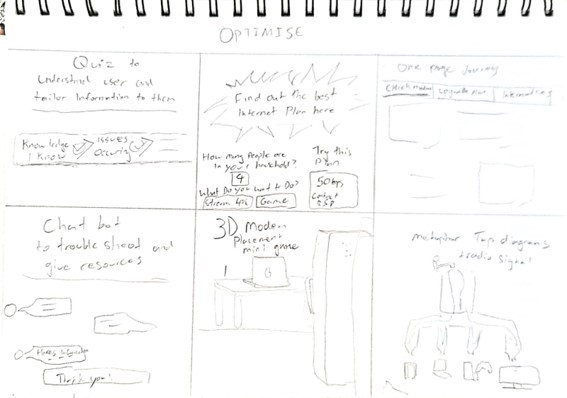 OPTIMISE
Quiz to
understand user and
tailor information to them
Knowledge
I know
issues
occuring
Find out the best
Internet Plan here
How many people are
in your household?
4
What Do you want to Do?
Stream 4k
Game
Try this
plan
50bps
Contact
ISP
One page Journey
Upgrade Plan
Chat bot
to troubleshoot and
give resources
Thank you!
3D Modem
Placement
mini game
Metaphor Tap diagrams
+ radio signal